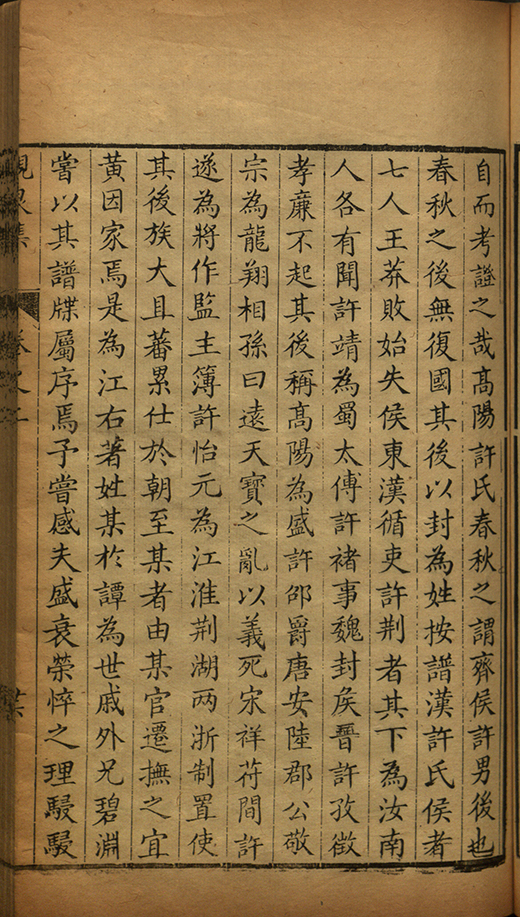 自而考證之哉髙陽許氏春秋之謂齊侯許男後也
春秋之後無復國其後以封為姓按譜漢許氏侯者
七人王莽敗始失侯東漢循吏許荆者其下為汝南
人各有聞許靖為蜀太傅許褚事魏封矦晉許孜徵
孝廉不起其後稱髙陽為盛許邵爵唐安陸郡公敬
宗為龍翔相孫曰遠天寶之亂以義死宋祥苻間許
遂為將作監主簿許怡元為江淮荆湖两浙制置使
其後族大且蕃累仕於朝至某者由某官遷撫之宜
黄因家焉是為江右著姓某於譚為世戚外兄碧淵
嘗以其譜牒屬序焉予嘗感夫盛衰榮悴之理駸駸
卷之二